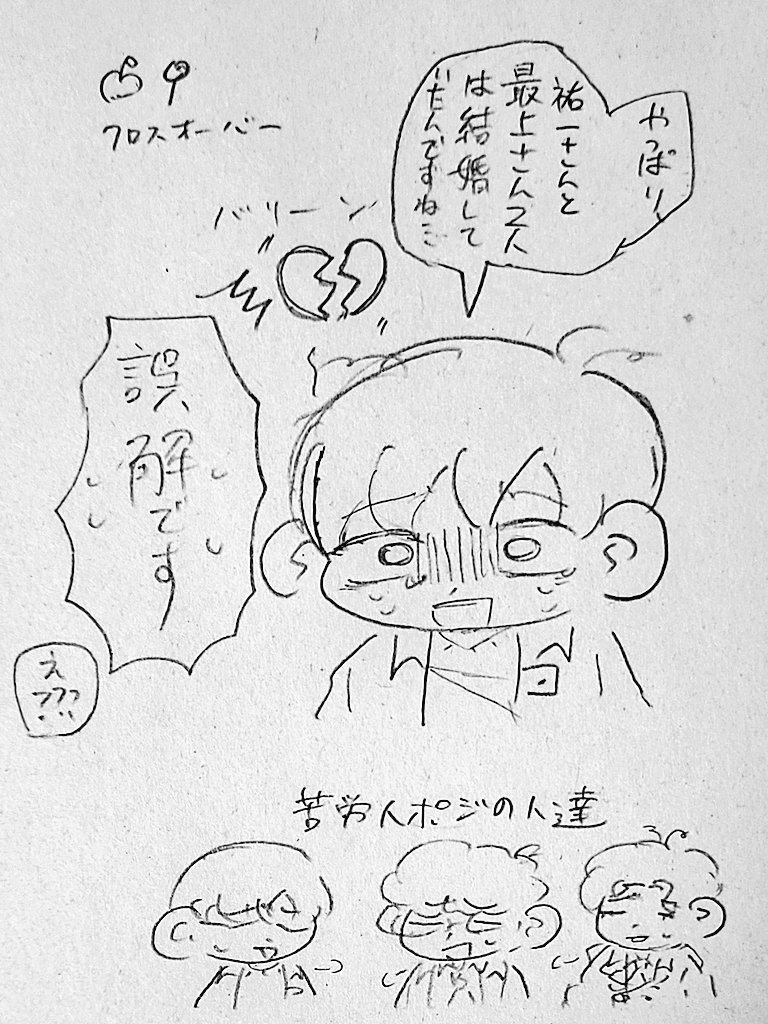 クロスオーバー
やっぱり
祐一さんと
最上さん2人
は結婚して
いたんですね…
バリーン
誤解です
え???
苦労人ポジの人達